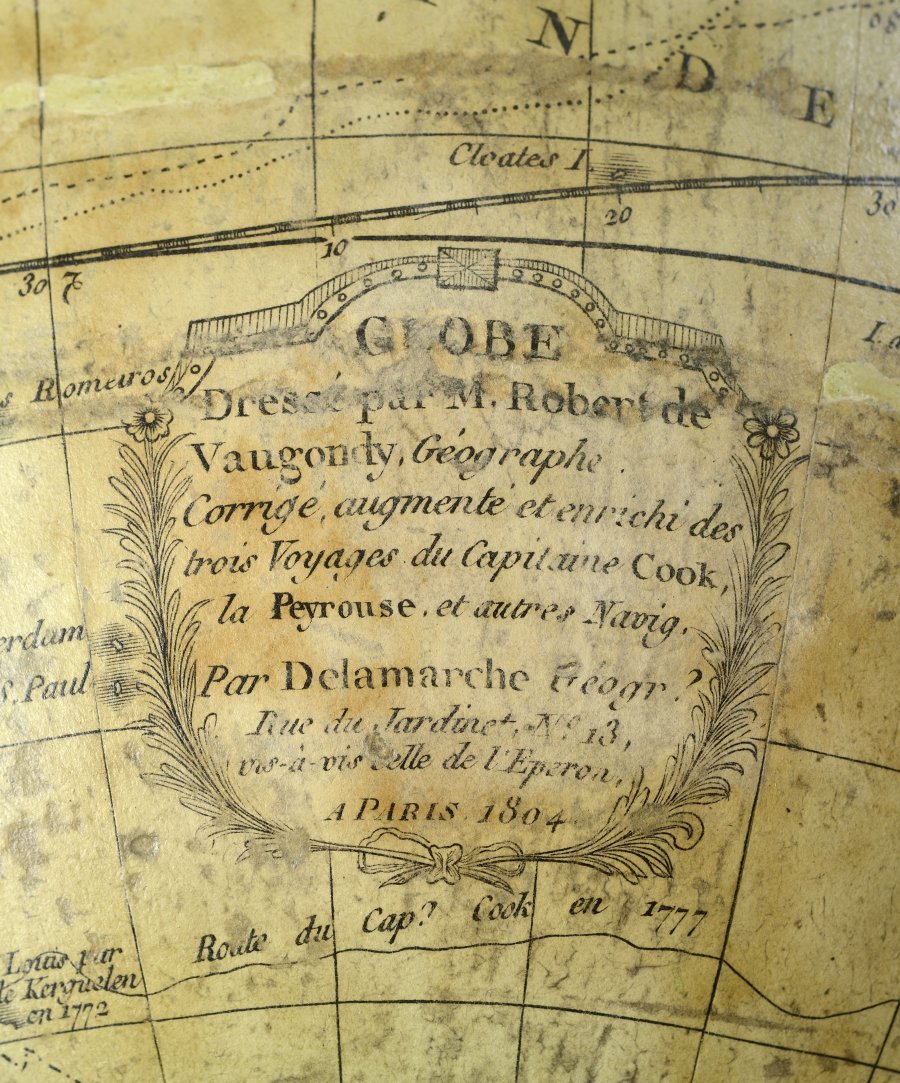 N D E
Cloates I.
20
30
10
30 7
GLOBE
Dressé par M. Robert de
Vaugondy, Géographe.
Corrigé, augmenté et enrichi des
trois Voyages du Capitaine Cook,
la Peyrouse, et autres Navig.
Par Delamarche Géogr.
Rue du Jardinet, No 13,
vis-à-vis celle de l'Eperon,
A PARIS 1804
s Romeiros
erdam
S. Paul
Route du Cap.e Cook en 1777
Louis par
de Kerguelen
en 1772